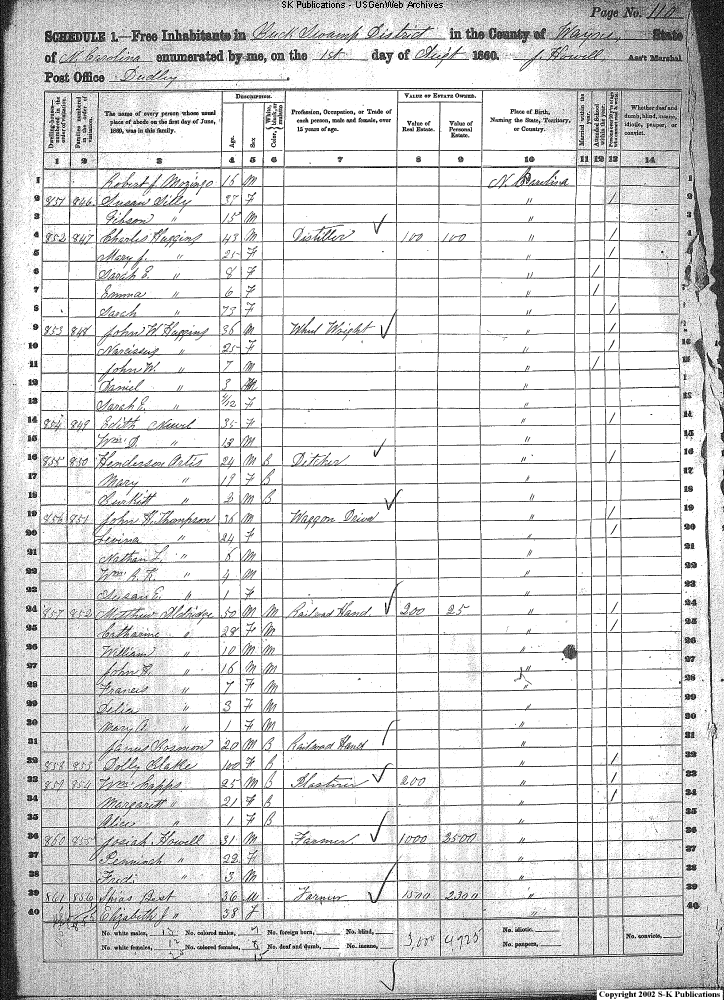 SK Publications - USGenWeb Archives
Page No. 110
SCHEDULE 1.—Free Inhabitants in Buck Swamp District in the County of Wayne, State
of N. Carolina enumerated by me, on the 1st day of Augt 1860. J. Howell Ass't Marshal
Post Office Dudley
Dwelling-houses— numbered in the order of visitation.
Families numbered in the order of visitation.
The name of every person whose usual place of abode on the first day of June, 1860, was in this family.
DESCRIPTION.
Age.
Sex.
Color, White, black, or mulatto.
Profession, Occupation, or Trade of each person, male and female, over 15 years of age.
VALUE OF ESTATE OWNED.
Value of Real Estate.
Value of Personal Estate.
Place of Birth, Naming the State, Territory, or Country.
Married within the year.
Attended School within the year.
Whether deaf and dumb, blind, insane, idiotic, pauper, or convict.
1 2 3 4 5 6 7 8 9 10 11 12 13 14
1 Robert J. Mozingo 16 M N. Carolina 1
2 851 846 Susan Silly 37 F " / 2
3 Gibson " 15 M " 3
4 852 847 Charles Huggins 43 M Distiller 100 100 " / 4
5 Mary J. " 25 F " / 5
6 Sarah E. " 8 F " / 6
7 Emma " 6 F " / 7
8 Sarah " 73 F " / 8
9 853 848 John W Huggins 36 M Wheel Wright " / 9
10 Narcissus " 25 F " / 10
11 John W. " 7 M " / 11
12 Daniel " 3 M " 12
13 Sarah E. " /12 F " 13
14 854 849 Edith 35 F " / 14
15 Wm D " 13 M " 15
16 855 850 Henderson Artis 24 M B Ditcher " / 16
17 Mary " 19 F B " 17
18 " 3 M B " 18
19 856 851 John H. Thompson 36 M Waggon Driver " / 19
20 Levina " 24 F " / 20
21 Nathan L. " 6 M " 21
22 Wm R. K. " 4 M " 22
23 Susan E. " 1 F " 23
24 857 852 Matthew Aldridge 50 M M Railroad Hand 200 25 " / 24
25 Catharine " 28 F M " / 25
26 William " 10 M M " 26
27 John " 16 M M " 27
28 Francis " 7 F M " 28
29 Delia " 3 F M " 29
30 Mary A. " 1 F M " 30
31 James 20 M B Railroad Hand " 31
32 858 853 Dolly 100 F B " / 32
33 859 854 Wm Capps 25 M B Plasterer 200 " / 33
34 Margarett " 21 F B " / 34
35 Alice " 1 F B " 35
36 860 855 Josiah Howell 31 M Farmer 1000 2500 " 36
37 " 22 F " 37
38 " 3 M " 38
39 861 856 Best 36 M Farmer 1500 2300 " 39
40 Elizabeth J " 38 F " 40
No. white males, No. colored males, No. foreign born, No. blind,
No. white females, No. colored females, No. deaf and dumb, No. insane,
3,000 4,925
No. idiotic,
No. paupers,
No. convicts,
Copyright 2002 S-K Publications